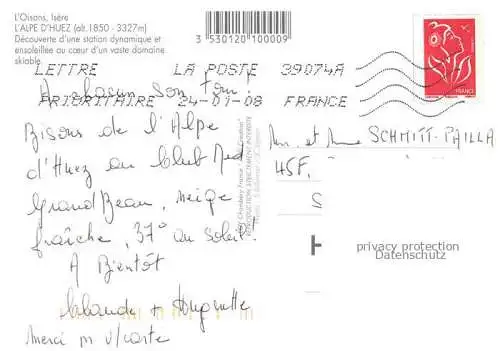 L'Oisans, Isère
L'ALPE D'HUEZ (alt.1850 - 3327m)
Découverte d'une station dynamique et
ensoleillée au cœur d'un vaste domaine
skiable.
3 530120 100009
LETTRE LA POSTE 39074A
PRIORITAIRE 24-01-08 FRANCE
FRANCE
A chacun son tour !
Bisous de l'Alpe
d'Huez au Club Med
Grand Beau, neige
fraîche, 37° au soleil !
A Bientôt
Claude + Huguette
Merci pr v/carte
REPRODUCTION STRICTEMENT INTERDITE
Mr. et Mme SCHMITT-PAILLA
45F,
5
privacy protection
Datenschutz